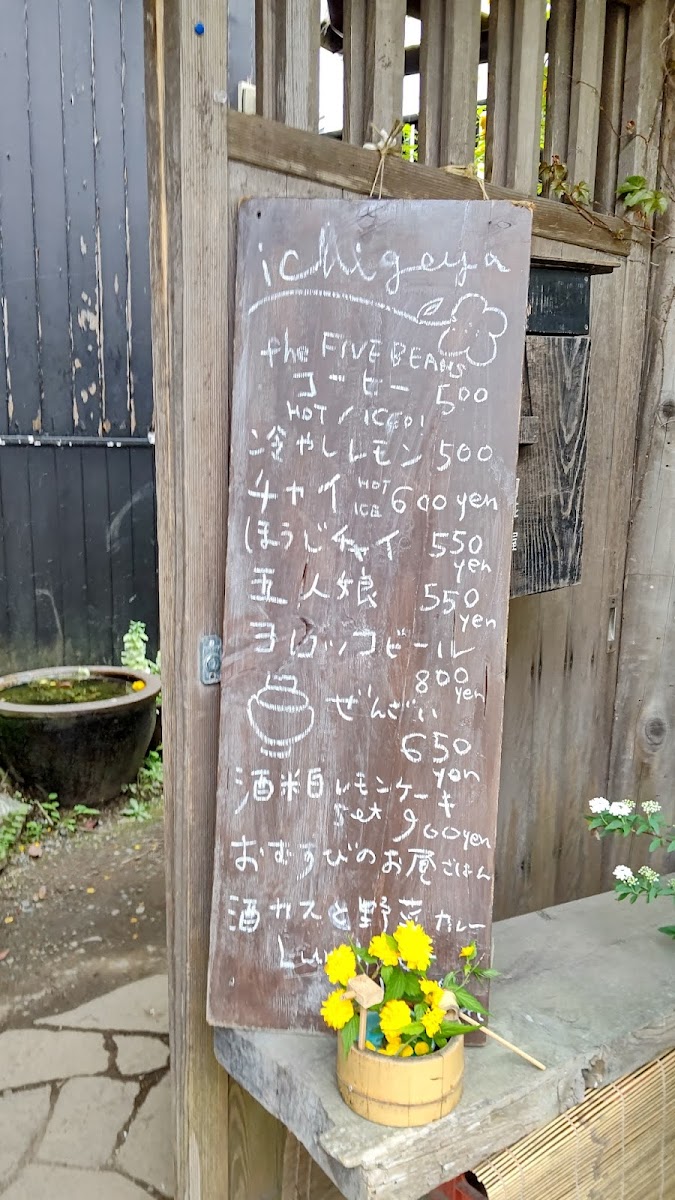 ichigeya
the FIVE BEANS
コーヒー 500
HOT / ICED
冷やしレモン 500
チャイ HOT ICE 600 yen
ほうじチャイ 550 yen
五人娘 550 yen
ヨロッコビール 800 yen
ぜんざい 650 yen
酒粕レモンケーキ
set 900 yen
おむすびのお昼ごはん
酒カスと野菜カレー